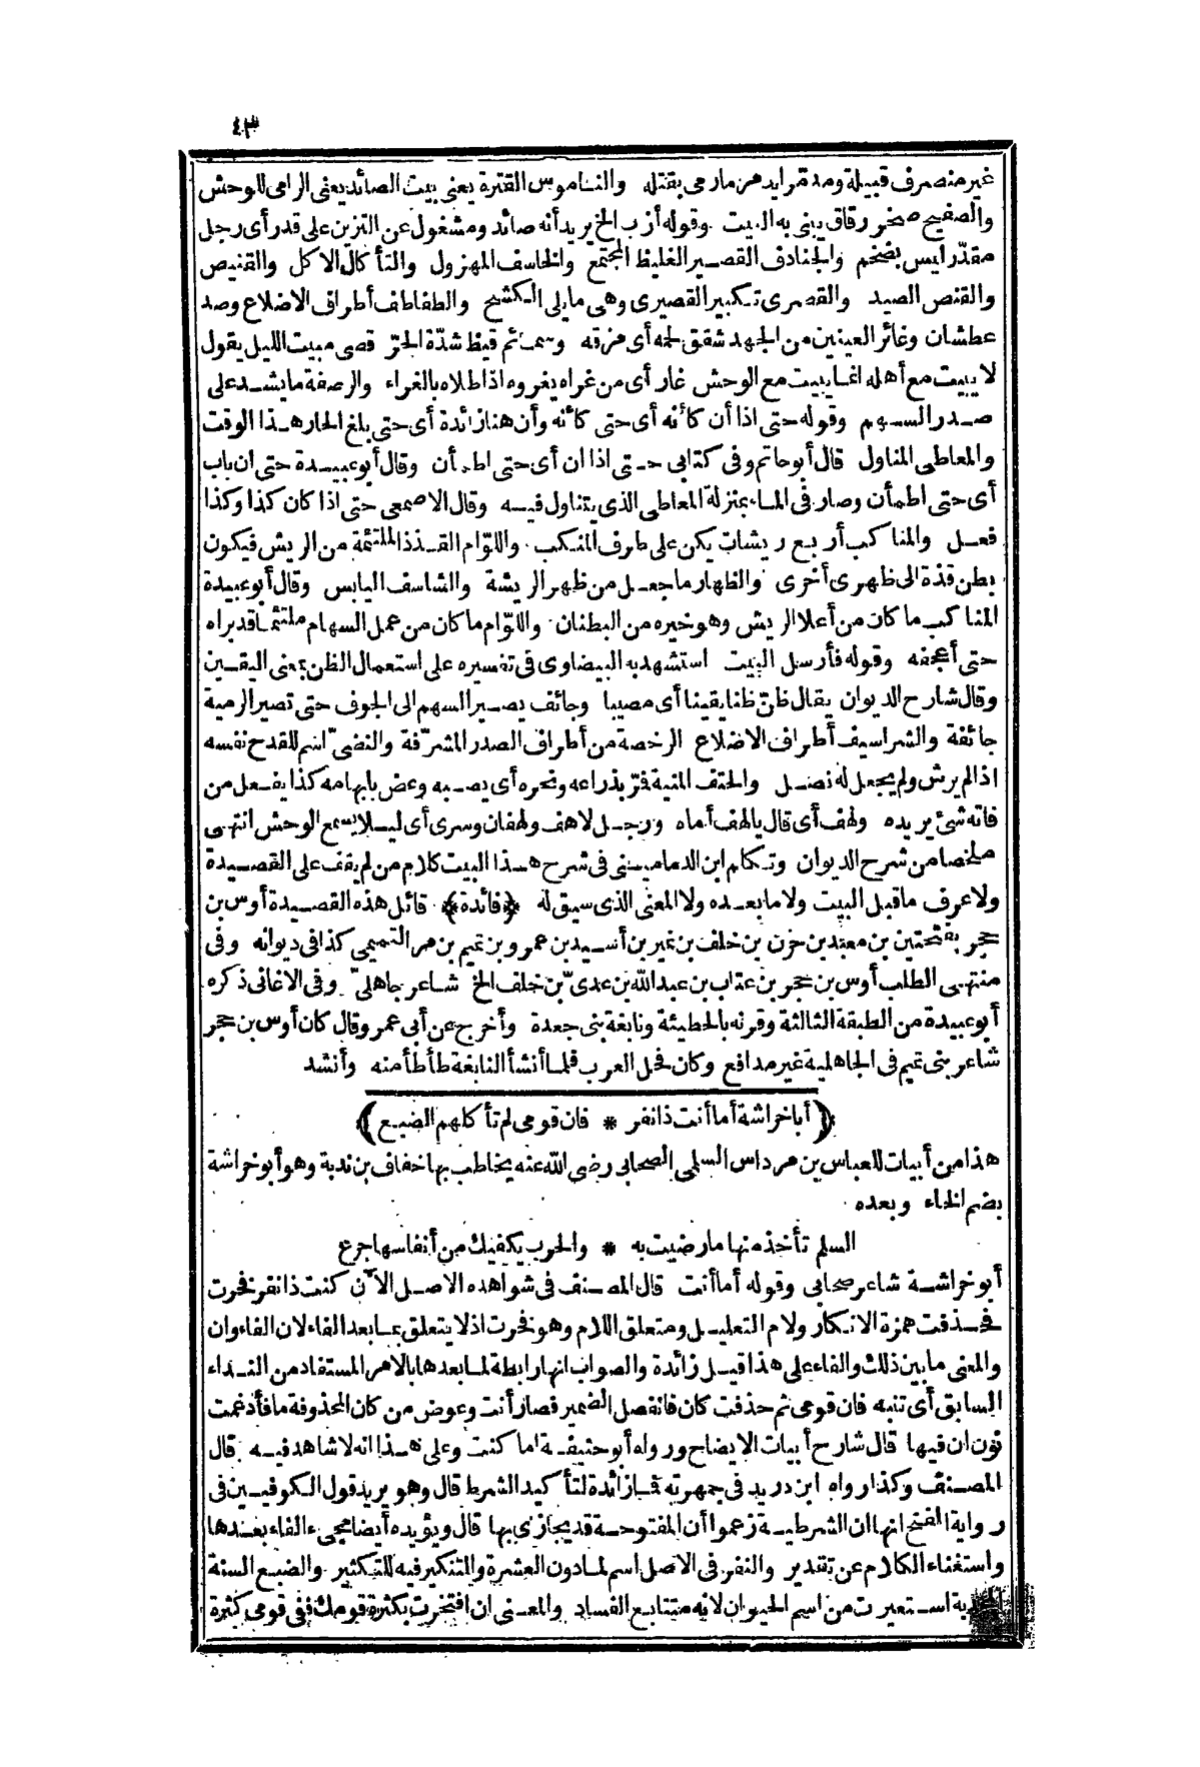 ٤٣
غير منصرف قبيلة ومدمر ايد هن مارمى بقتله والناموس القترة يعنى بيت الصائد يعنى الرامى للوحش
والصفيح صخر رقاق يبنى به البيت وقوله أزب الخ يريد أنه صائد ومشغول عن التزين على قدر أى رجل
مقدّر ليس بضخم والجنادف القصير الغليظ المجتمع والخاسف المهزول والتأكال الاكل والقنيص
والقنص الصيد والقصرى تكبير القصيرى وهى مايلى الكشح والطفاطف أطراف الاضلاع وصد
عطشان وغائر العينين من الجهد شقق لحمه أى مزقه وسمائم قيظ شدّة الحرّ قصى مبيت الليل يقول
لا يبيت مع أهله انما يبيت مع الوحش غار أى من غراه يغروه اذا طلاه بالغراء والرصفة مايشد على
صدر السهم وقوله حتى اذا أن كأنه أى حتى كأنه وأن هنا زائدة أى حتى بلغ الحار هذا الوقت
والمعاطى المناول قال أبو حاتم وفى كتابى حتى اذا ان أى حتى اطمأن وقال أبو عبيدة حتى ان باب
أى حتى اطمأن وصار فى الماء بمنزلة المعاطى الذى يتناول فيه وقال الاصمعى حتى اذا كان كذا وكذا
فعل والمناكب أربع ريشات يكن على طرف المنكب واللوّام القذذ الملتئمة من الريش فيكون
بطن قذة الى ظهرى أخرى والظهار ما جعل من ظهر الريشة والشاسف اليابس وقال أبو عبيدة
المناكب ما كان من أعلا الريش وهو خيره من البطنان واللوّام ما كان من عمل السهام ملتئما قد براه
حتى أعجفه وقوله فأرسل البيت استشهد به البيضاوى فى تفسيره على استعمال الظن بمعنى اليقين
وقال شارح الديوان يقال ظنّ ظنا يقينا أى مصيبا وجائف يصير السهم الى الجوف حتى تصير الرمية
جائفة والشراسيف أطراف الاضلاع الرخصة من أطراف الصدر المشرّفة والنضىّ اسم للقدح نفسه
اذا لم يرش ولم يجعل له نصل والحتف المنية فترّ بذراعه ونحره أى يصيبه وعض بابهامه كذا يفعل من
فاته شئ يريده ولهف أى قال يالهف أماه ورجل لاهف ولهفان وسرى أى ليلا يسمع الوحش انتهى
ملخصا من شرح الديوان وتكلم ابن الدمامينى فى شرح هذا البيت كلام من لم يقف على القصيدة
ولا عرف ما قبل البيت ولا ما بعده ولا المعنى الذى سيق له ﴿فائدة﴾ قائل هذه القصيدة أوس بن
حجر بفتحتين بن معبد بن حزن بن خلف بن نمير بن أسيد بن عمرو بن تميم بن مر التميمى كذا فى ديوانه وفى
منتهى الطلب أوس بن حجر بن عتاب بن عبد الله بن عدىّ بن خلف الخ شاعر جاهلىّ وفى الاغانى ذكره
أبو عبيدة من الطبقة الثالثة وقرنه بالحطيئة ونابغة بنى جعدة وأخرج عن أبى عمر وقال كان أوس بن حجر
شاعر بنى تميم فى الجاهلية غير مدافع وكان فحل العرب فلما أنشأ النابغة طأطأ منه وأنشد
﴿أبا خراشة أما أنت ذا نفر * فان قومى لم تأكلهم الضبع﴾
هذا من أبيات للعباس بن مرداس السلمى الصحابى رضى الله عنه يخاطب بها خفاف بن ندبة وهو أبو خراشة
بضم الخاء وبعده
السلم تأخذ منها ما رضيت به * والحرب يكفيك من أنفاسها جرع
أبو خراشة شاعر صحابى وقوله أما أنت قال المصنف فى شواهده الاصل الآن كنت ذا نفر فخرت
فحذفت همزة الانكار ولام التعليل ومتعلق اللام وهو فخرت اذ لا يتعلق بما بعد الفاء لان الفاء وان
والمعنى ما بين ذلك والفاء على هذا قيل زائدة والصواب انها رابطة لما بعدها بالامر المستفاد من النداء
السابق أى تنبه فان قومى ثم حذفت كان فانفصل الضمير فصار أنت وعوض من كان المحذوفة ما فأدغمت
نون ان فيها قال شارح أبيات الايضاح ورواه أبو حنيفة اما كنت وعلى هذا انه لا شاهد فيه قال
المصنف وكذا رواه ابن دريد فى جمهرته فما زائدة لتأكيد الشرط قال وهو يريد قول الكوفيين فى
رواية الفتح انها ان الشرطية زعموا أن المفتوحة قد يجازى بها قال ويؤيده أيضا مجىء الفاء بعدها
واستغناء الكلام عن تقدير والنفر فى الاصل اسم لما دون العشرة والتنكير فيه للتكثير والضبع السنة
استعيرت من اسم الحيوان لانه متتابع الفساد والمعنى ان افتخرت بكثرة قومك ففى قومى كثرة